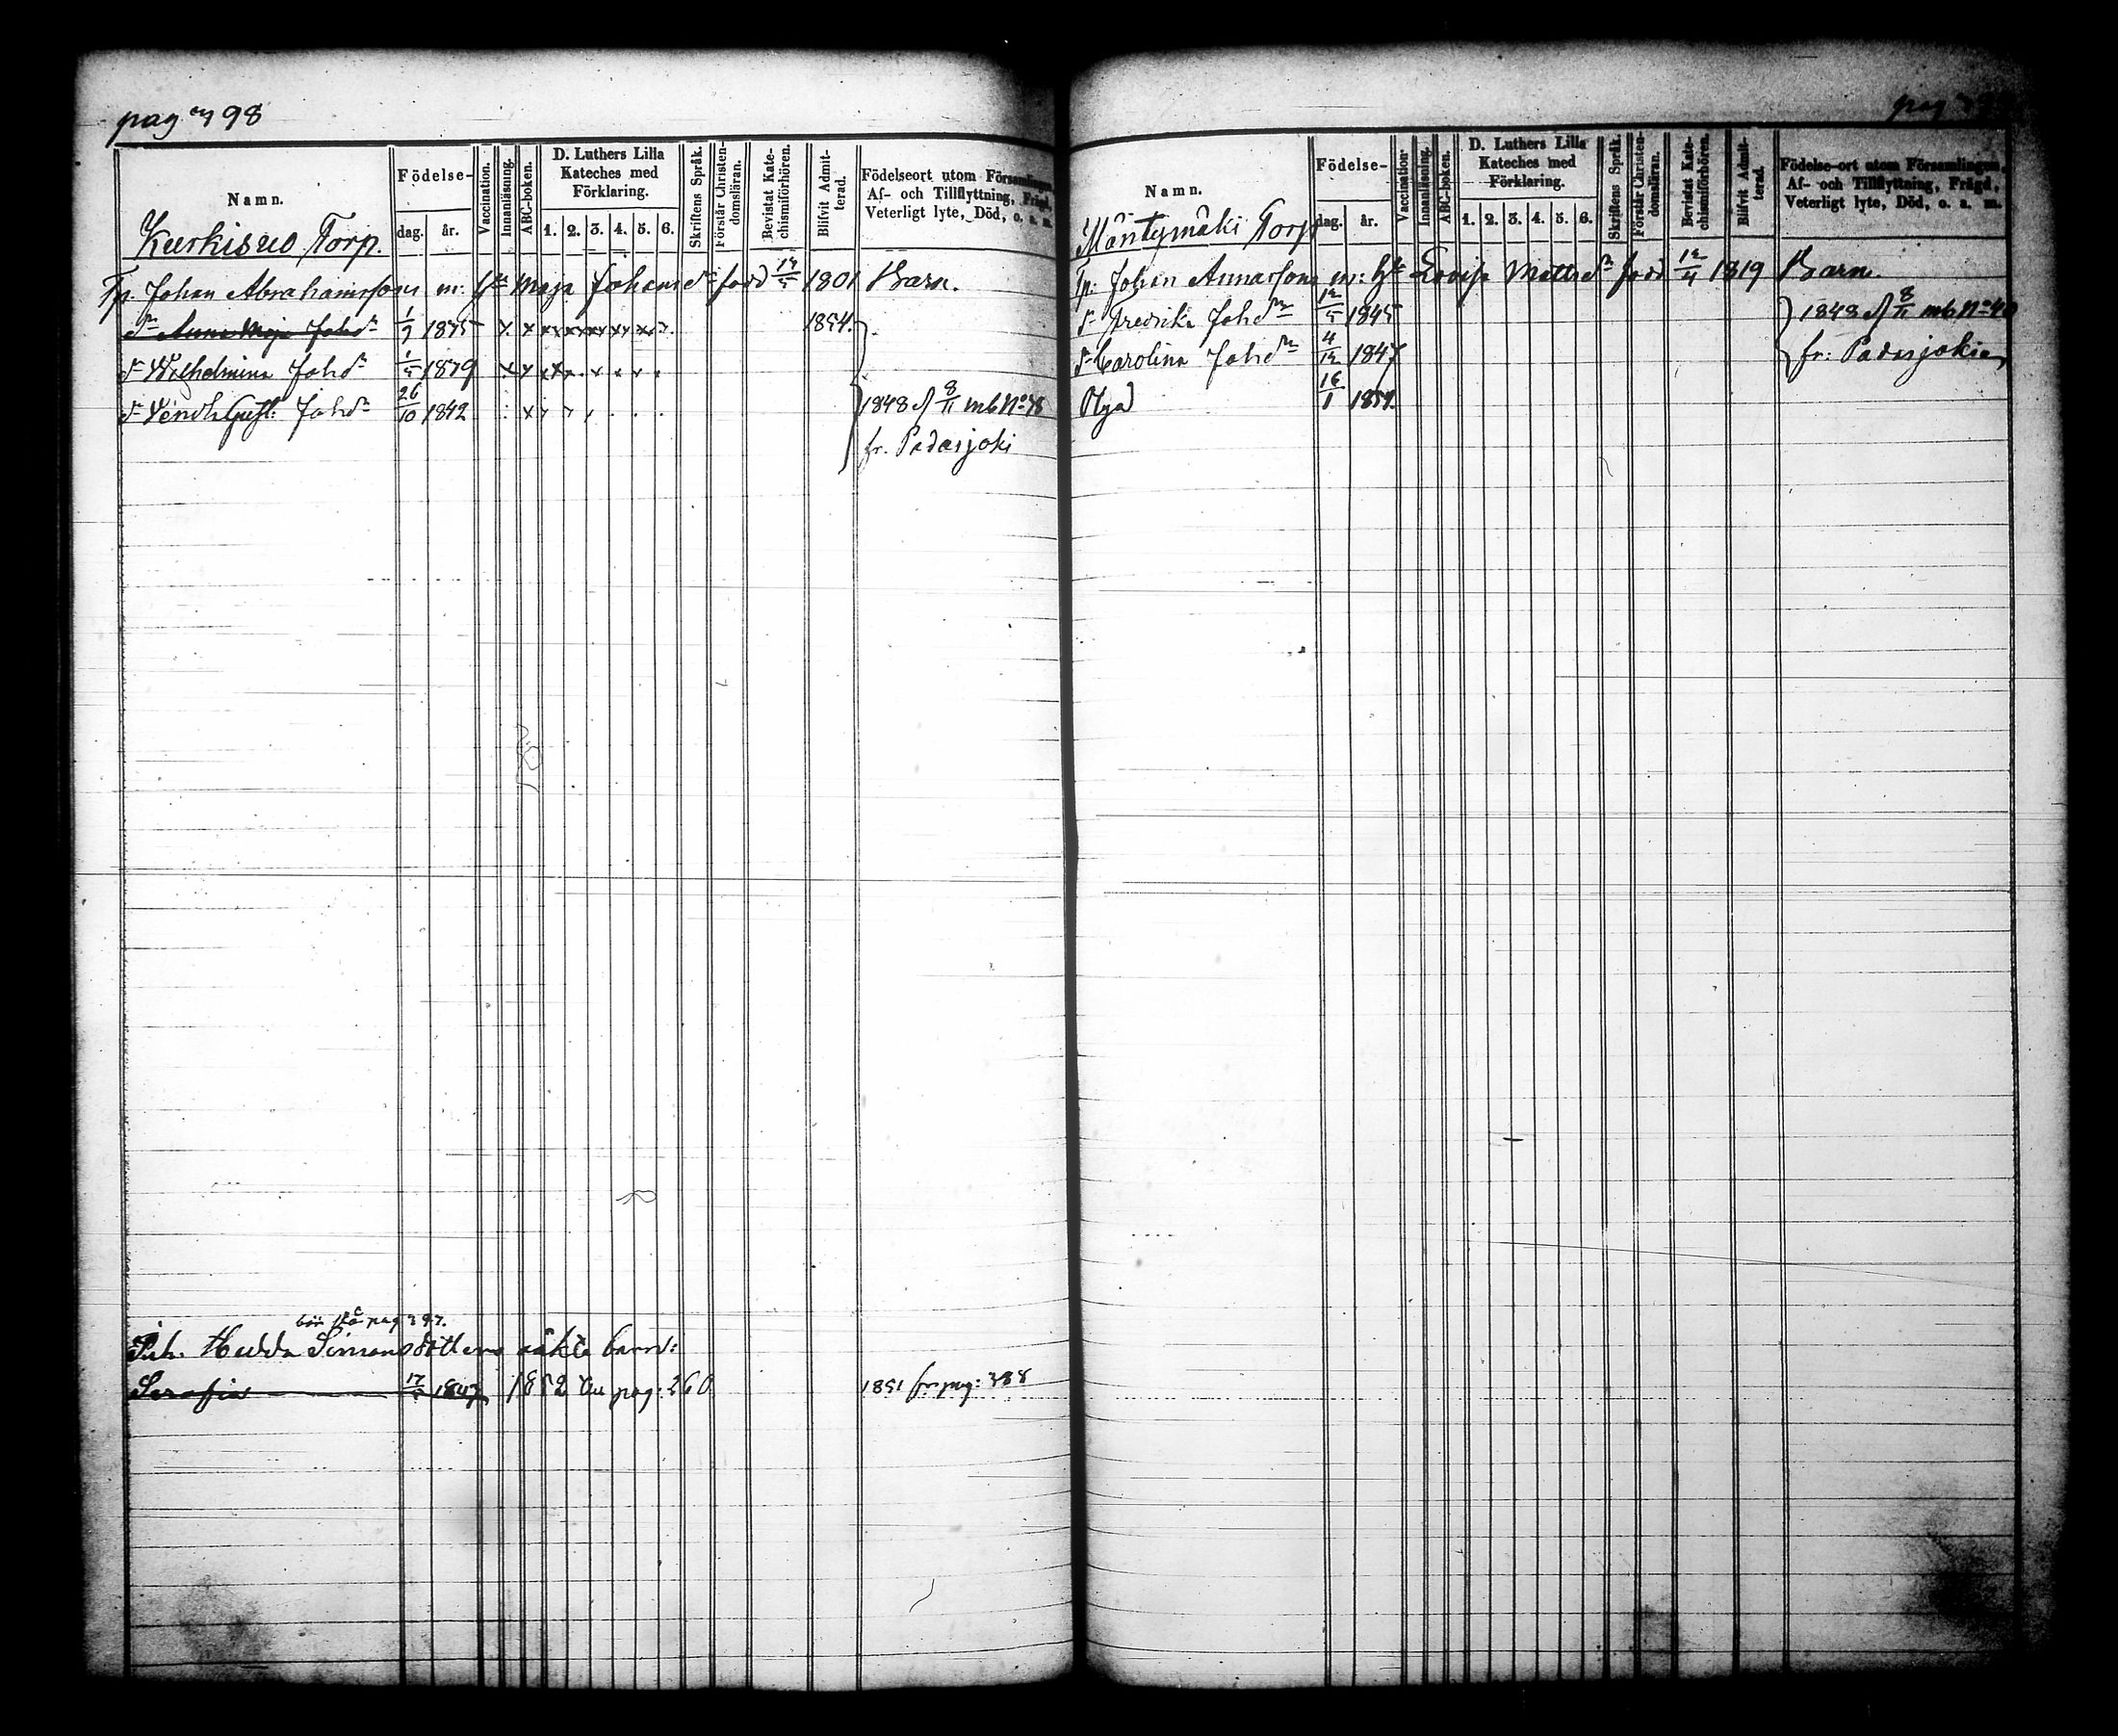 pag 398
Namn.
Födelse-
dag.
år.
Vaccination.
Innanläsning.
ABC-boken.
D. Luthers Lilla
Kateches med
Förklaring.
1. 2. 3. 4. 5. 6.
Skriftens Språk.
Förstår Christen-
domsläran.
Bevistat Kate-
chismiförhören.
Blifvit Admit-
terad.
Födelseort utom Församlingen,
Af- och Tillflyttning, Frägd,
Veterligt lyte, Död, o. a. m.
Kurkisuo Torp.
Tp. Johan Abrahamssons m: Maja Johansd:r född 1801 Barn.
Anna Maja Johd:r 1/7 1835 x x x x x x x x 1854.
Wilhelmina Johd:r 1/5 1839 x x x x x x x x
Johd:r 26/10 1842 1848 d 8/11 mb No 48
fr. Padasjoki
bör stå pag 397.
Hedda Simonsdotters oäkta barn:
Serafia 1847 1852 pag: 260 1851 fr pag: 388
Namn.
Födelse-
dag.
år.
Vaccination.
Innanläsning.
ABC-boken.
D. Luthers Lilla
Kateches med
Förklaring.
1. 2. 3. 4. 5. 6.
Skriftens Språk.
Förstår Christen-
domsläran.
Bevistat Kate-
chismiförhören.
Blifvit Admit-
terad.
Födelse-ort utom Församlingen,
Af- och Tillflyttning, Frägd,
Veterligt lyte, Död, o. a. m.
Mäntymäki Torp
Tp. Johan m: Lovisa Mattsd:r född 12/4 1819 Barn.
Fredrika Johd:r 12/5 1845 1848 d 8/11 mb No 40
Carolina Johd:r 4/12 1847 fr: Padasjoki
Olga 16/1 1851.